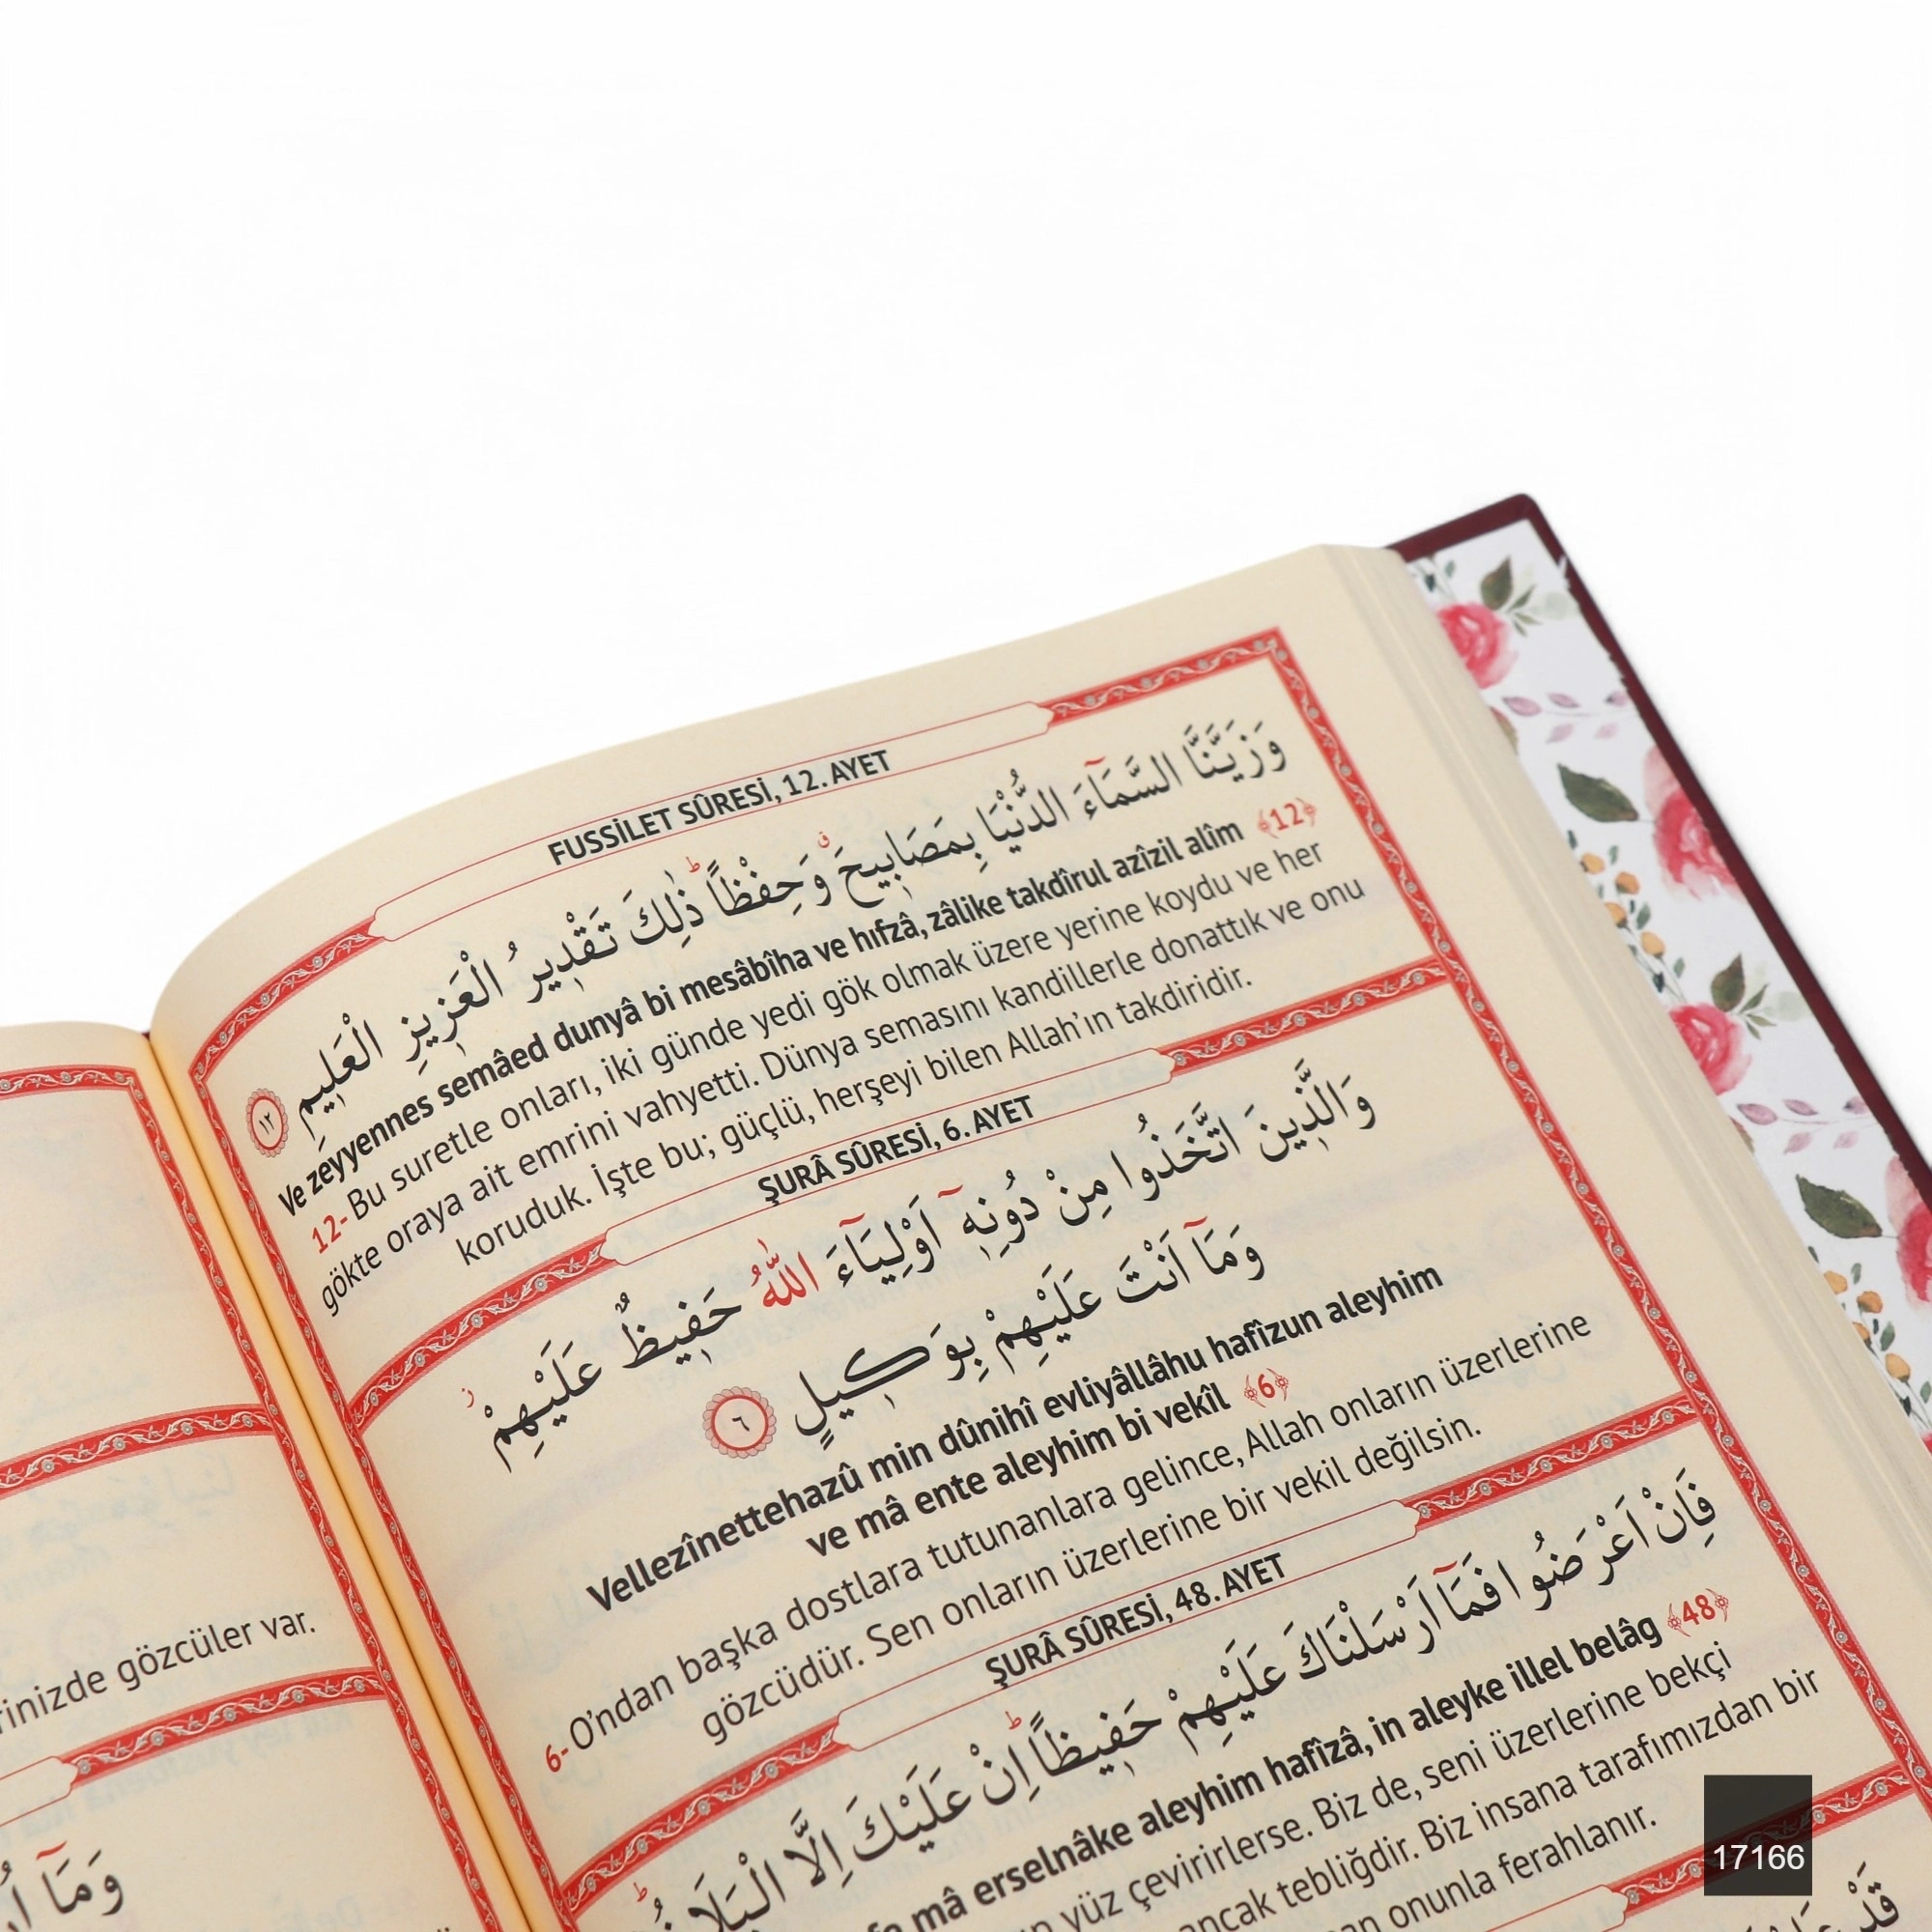 rinizde gözcüler var.
وَمَٓا
FUSSİLET SÛRESİ, 12. AYET
وَزَيَّنَّا السَّمَٓاءَ الدُّنْيَا بِمَصَابٖيحَۗ وَحِفْظًاۜ ذٰلِكَ تَقْدٖيرُ الْعَزٖيزِ الْعَلٖيمِ ﴿١٢﴾
Ve zeyyennes semâed dunyâ bi mesâbîha ve hıfzâ, zâlike takdîrul azîzil alîm ﴾12﴿
12- Bu suretle onları, iki günde yedi gök olmak üzere yerine koydu ve her
gökte oraya ait emrini vahyetti. Dünya semasını kandillerle donattık ve onu
koruduk. İşte bu; güçlü, herşeyi bilen Allah’ın takdiridir.
ŞURÂ SÛRESİ, 6. AYET
وَالَّذٖينَ اتَّخَذُوا مِنْ دُونِهٖٓ اَوْلِيَٓاءَ اللّٰهُ حَفٖيظٌ عَلَيْهِمْۘ
وَمَٓا اَنْتَ عَلَيْهِمْ بِوَكٖيلٍ ﴿٦﴾
Vellezînettehazû min dûnihî evliyâllâhu hafîzun aleyhim
ve mâ ente aleyhim bi vekîl ﴾6﴿
6- O’ndan başka dostlara tutunanlara gelince, Allah onların üzerlerine
gözcüdür. Sen onların üzerlerine bir vekil değilsin.
ŞURÂ SÛRESİ, 48. AYET
فَاِنْ اَعْرَضُوا فَمَٓا اَرْسَلْنَاكَ عَلَيْهِمْ حَفٖيظًاۜ اِنْ عَلَيْكَ اِلَّا الْبَلَاغُۜ
mâ erselnâke aleyhim hafîzâ, in aleyke illel belâg ﴾48﴿
yüz çevirirlerse. Biz de, seni üzerlerine bekçi
ancak tebliğdir. Biz insana tarafımızdan bir
onunla ferahlanır.
قَدْ
17166